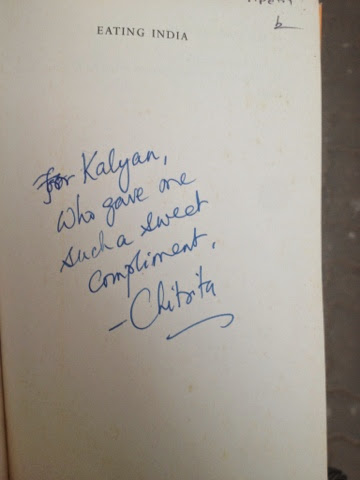 EATING INDIA
For Kalyan,
who gave me
such a sweet
compliment.
- Chitrita